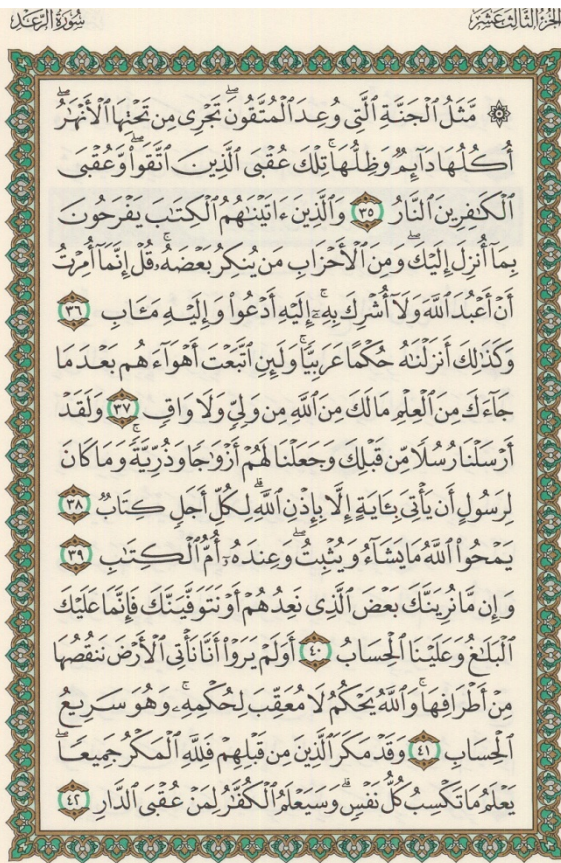 الجزء الثالث عشر
سُورَةُ الرَّعْدِ
۞ مَّثَلُ الْجَنَّةِ الَّتِي وُعِدَ الْمُتَّقُونَ ۖ تَجْرِي مِن تَحْتِهَا الْأَنْهَٰرُ ۖ
أُكُلُهَا دَآئِمٌ وَظِلُّهَا ۚ تِلْكَ عُقْبَى الَّذِينَ اتَّقَوا۟ ۖ وَّعُقْبَى
الْكَٰفِرِينَ النَّارُ ٣٥ وَالَّذِينَ ءَاتَيْنَٰهُمُ الْكِتَٰبَ يَفْرَحُونَ
بِمَآ أُنزِلَ إِلَيْكَ ۖ وَمِنَ الْأَحْزَابِ مَن يُنكِرُ بَعْضَهُۥ ۚ قُلْ إِنَّمَآ أُمِرْتُ
أَنْ أَعْبُدَ اللَّهَ وَلَآ أُشْرِكَ بِهِۦٓ ۚ إِلَيْهِ أَدْعُوا۟ وَإِلَيْهِ مَـَٔابِ ٣٦
وَكَذَٰلِكَ أَنزَلْنَٰهُ حُكْمًا عَرَبِيًّا ۚ وَلَئِنِ اتَّبَعْتَ أَهْوَآءَهُم بَعْدَمَا
جَآءَكَ مِنَ الْعِلْمِ مَا لَكَ مِنَ اللَّهِ مِن وَلِيٍّ وَلَا وَاقٍ ٣٧ وَلَقَدْ
أَرْسَلْنَا رُسُلًا مِّن قَبْلِكَ وَجَعَلْنَا لَهُمْ أَزْوَٰجًا وَذُرِّيَّةً ۚ وَمَا كَانَ
لِرَسُولٍ أَن يَأْتِيَ بِـَٔايَةٍ إِلَّا بِإِذْنِ اللَّهِ ۗ لِكُلِّ أَجَلٍ كِتَابٌ ٣٨
يَمْحُوا۟ اللَّهُ مَا يَشَآءُ وَيُثْبِتُ ۖ وَعِندَهُۥٓ أُمُّ الْكِتَٰبِ ٣٩
وَإِن مَّا نُرِيَنَّكَ بَعْضَ الَّذِي نَعِدُهُمْ أَوْ نَتَوَفَّيَنَّكَ فَإِنَّمَا عَلَيْكَ
الْبَلَٰغُ وَعَلَيْنَا الْحِسَابُ ٤٠ أَوَلَمْ يَرَوْا۟ أَنَّا نَأْتِي الْأَرْضَ نَنقُصُهَا
مِنْ أَطْرَافِهَا ۚ وَاللَّهُ يَحْكُمُ لَا مُعَقِّبَ لِحُكْمِهِۦ ۚ وَهُوَ سَرِيعُ
الْحِسَابِ ٤١ وَقَدْ مَكَرَ الَّذِينَ مِن قَبْلِهِمْ فَلِلَّهِ الْمَكْرُ جَمِيعًا ۖ
يَعْلَمُ مَا تَكْسِبُ كُلُّ نَفْسٍ ۗ وَسَيَعْلَمُ الْكُفَّٰرُ لِمَنْ عُقْبَى الدَّارِ ٤٢